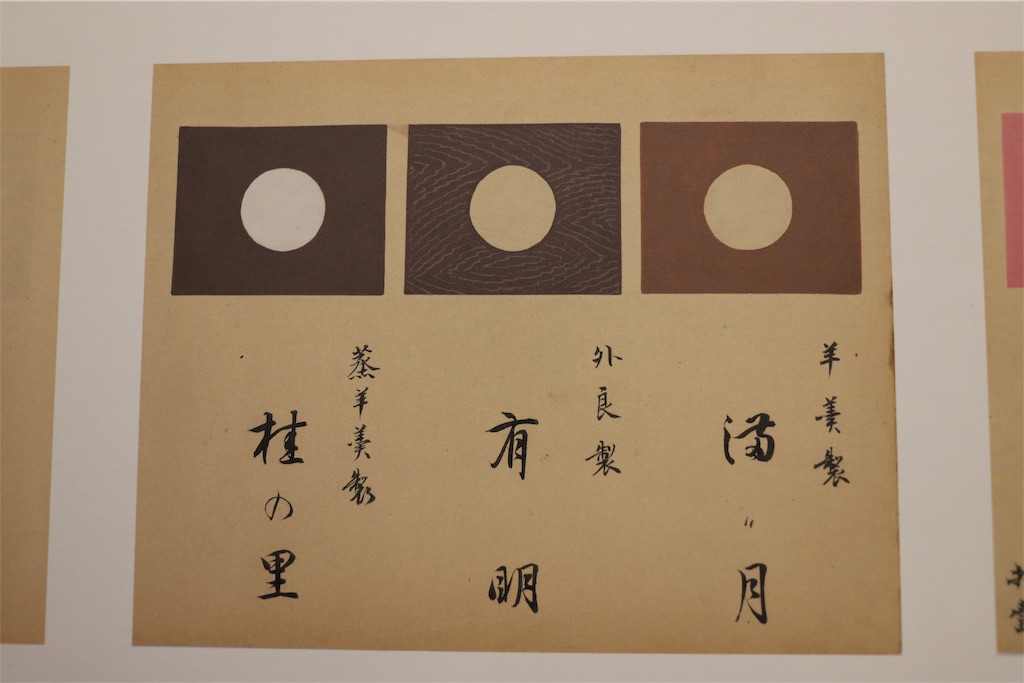 羊羹製
満〃月
外良製
有明
蒸羊羹製
桂の里